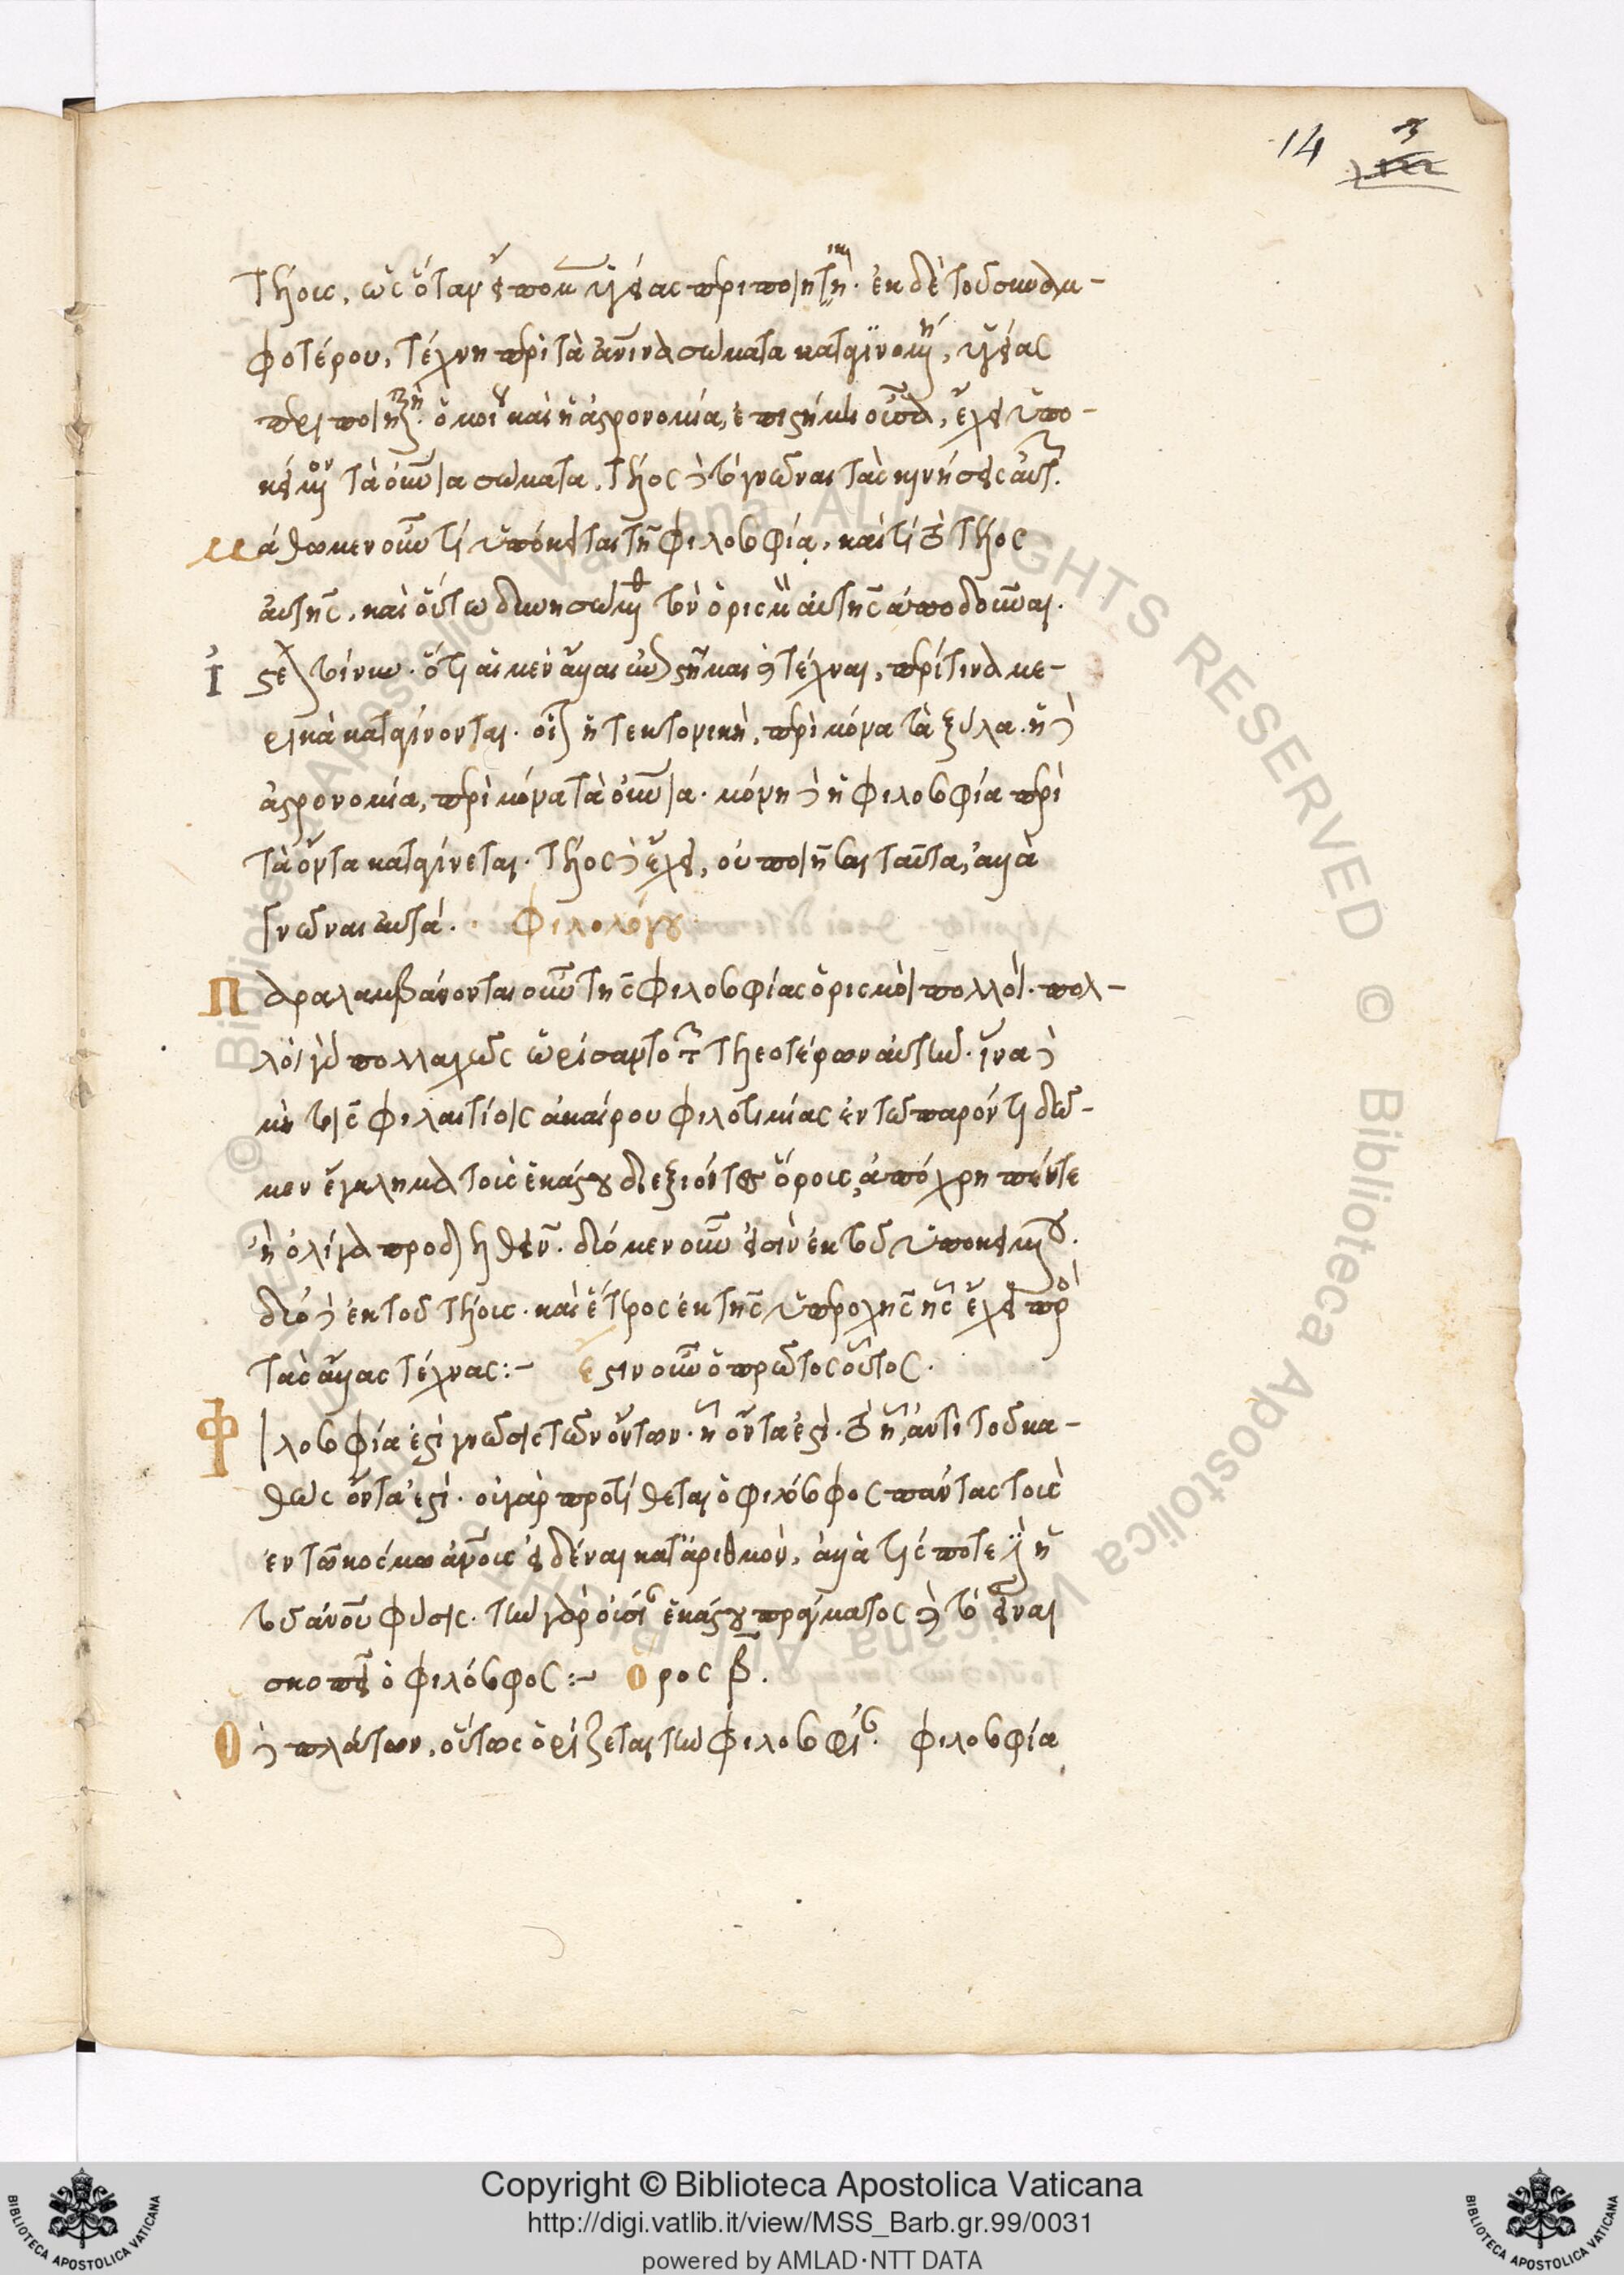 14 3
τέλους, ὡς ὅταν εἴπωμεν ὑγείας περιποιητική. ἐκ δὲ τοῦ συναμ-
φοτέρου, τέχνη περὶ τὰ ἀνθρώπινα σώματα καταγινομένη, ὑγείας
περιποιητική. ὁμοίως καὶ ἡ ἀστρονομία, ἐπιστήμη οὖσα, ἔχει ὑπο-
κείμενον τὰ οὐράνια σώματα. τέλος δὲ τὸ γνῶναι τὰς κινήσεις αὐτῶν.
μάθωμεν οὖν τί ὑπόκειται τῇ φιλοσοφίᾳ, καὶ τί τὸ τέλος
αὐτῆς, καὶ οὕτω δυνησώμεθα τὸν ὁρισμὸν αὐτῆς ἀποδοῦναι.
Ἰστέον τοίνυν. ὅτι αἱ μὲν ἄλλαι ἐπιστῆμαι καὶ τέχναι, περί τινα με-
ρικὰ καταγίνονται. οἷον ἡ τεκτονικὴ, περὶ μόνα τὰ ξύλα. ἡ δὲ
ἀστρονομία, περὶ μόνα τὰ οὐράνια. μόνη δὲ ἡ φιλοσοφία περὶ
τὰ ὄντα καταγίνεται. τέλος δὲ ἔχει, οὐ ποιῆσαι ταῦτα, ἀλλὰ
γνῶναι αὐτά. φιλολόγου
Παραλαμβάνονται οὖν τῆς φιλοσοφίας ὁρισμοὶ πολλοί. πολ-
λοὶ γὰρ πολλαχῶς ὡρίσαντο τῶν τελεοτέρων αὐτήν. ἵνα δὲ
μὴ τοῖς φιλαιτίοις ἀκαίρου φιλοτιμίας ἐν τῷ παρόντι δῶ-
μεν ἔγκλημα τοὺς ἑκάστου διεξιόντες ὅρους, ἀπόχρη πέντε
ἢ ὀλίγα προδιελθεῖν. δύο μὲν οὖν εἰσὶν ἐκ τοῦ ὑποκειμένου.
δύο δὲ ἐκ τοῦ τέλους. καὶ ἕτερος ἐκ τῆς ὑπεροχῆς ἧς ἔχει πρὸς
τὰς ἄλλας τέχνας:- ἔστιν οὖν ὁ πρῶτος οὗτος.
Φιλοσοφία ἐστὶ γνῶσις τῶν ὄντων. ᾗ ὄντα ἐστί. τὸ ᾗ, ἀντὶ τοῦ κα-
θὼς ὄντα ἐστί. οὐ γὰρ προτίθεται ὁ φιλόσοφος πάντας τοὺς
ἐν τῷ κόσμῳ ἀνθρώπους εἰδέναι κατ' ἀριθμὸν, ἀλλὰ τίς ποτε ἐστὶν ἡ
τοῦ ἀνθρώπου φύσις. τὴν γὰρ οὐσίαν ἑκάστου πράγματος καὶ τὸ εἶναι
σκοπεῖ ὁ φιλόσοφος:- Ὅρος β.
Ὁ δὲ πλάτων, οὕτως ὁρίζεται τὴν φιλοσοφίαν. φιλοσοφία
Copyright © Biblioteca Apostolica Vaticana
http://digi.vatlib.it/view/MSS_Barb.gr.99/0031
powered by AMLAD·NTT DATA